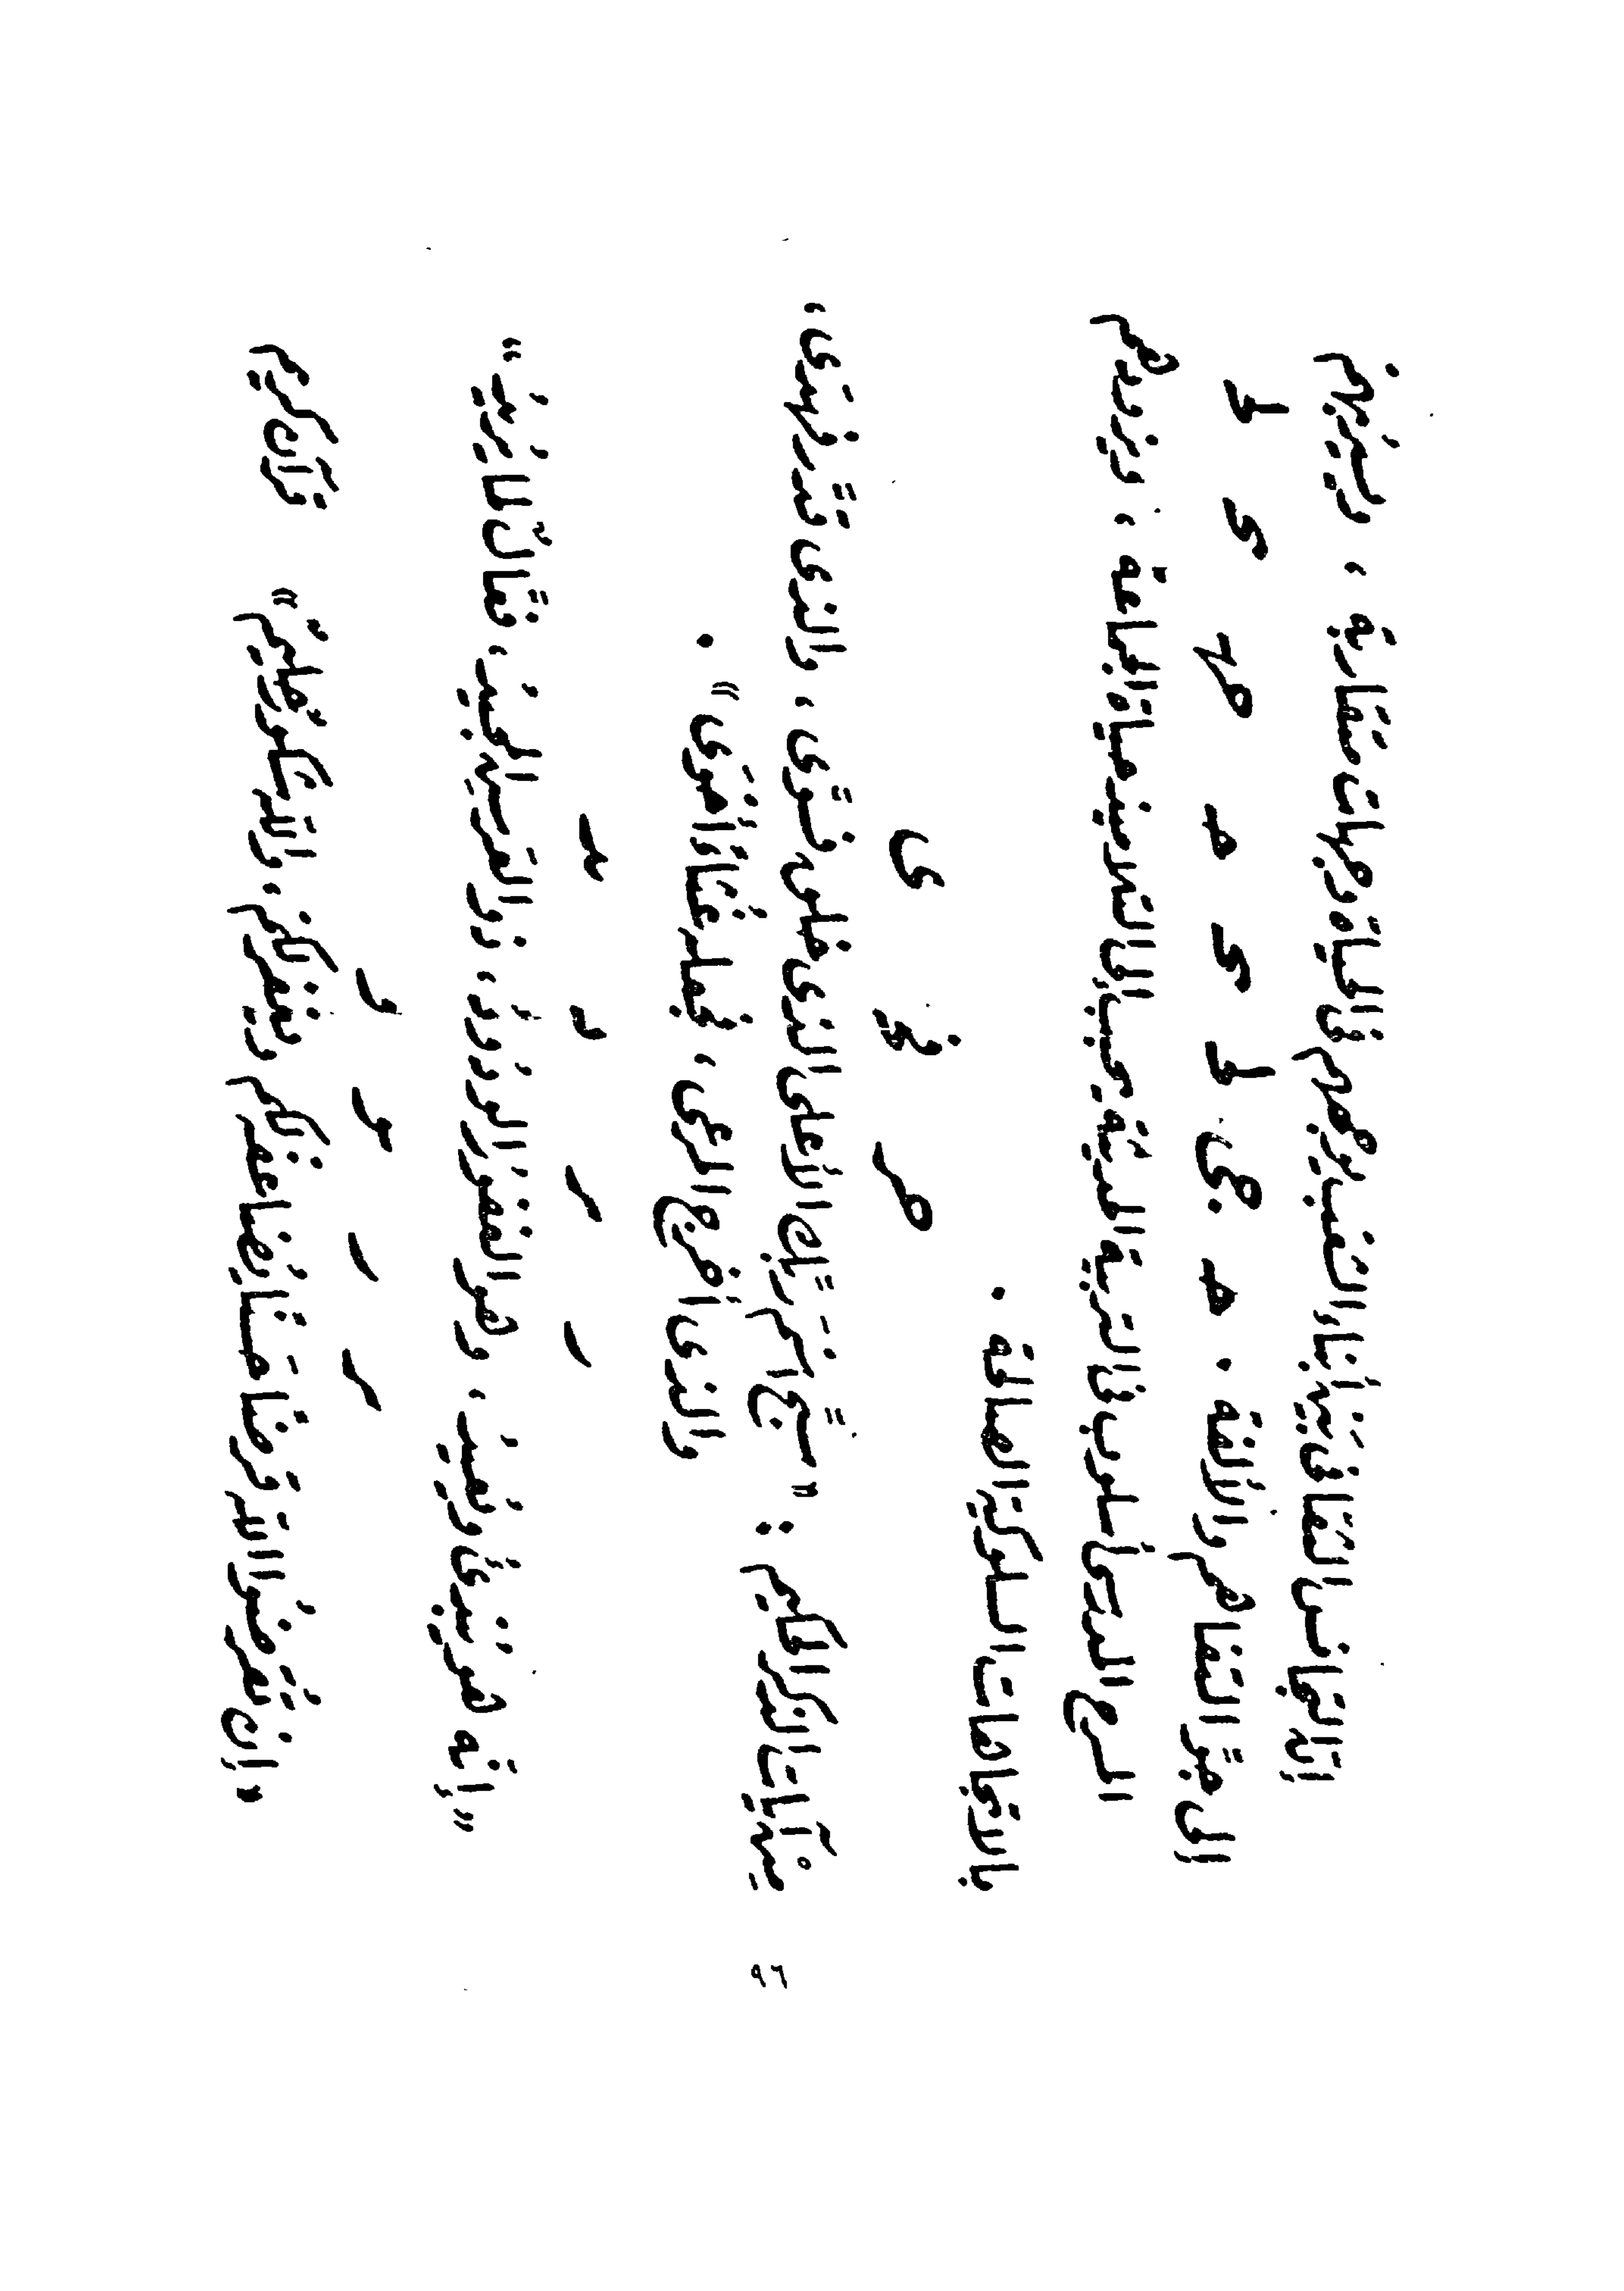 إنّ التجانس الثقافىّ بَيْنَ أبناء الشعب يوجههم فى الحياة وجهات متقاربة ، ويسيرُ بهم
إلى جوّ التفاهم والألفة .
المسرح المدرسى أسلوب فى التربية الحديثة يحبب إلى التلاميذ حياة الجماعة ، ويزودهم
بالاتجاهات السلوكية الصالحة .
ى
مِنْ آيات الذكر الحكيم : «سبّح اسْمَ ربّك الأعلى الذى خلق فسوّى ، والذى قدّر فهدَى ،
والذى أخرج المرعى ، فجعله غُثاءً أحْوَى» .
«إنه هو يُبْدِئُ ويُعيدُ ، وهو الغفورُ الودُودُ ، ذو العرش المجيدُ ، فعّالٌ لما يُريدُ»
«إن تُقْرضُوا الله قرضًا حسَنًا يُضاعفْه لكُم ويغفرْ لكم ، والله شكورٌ حليمٌ» قرآن كريم
٩٦